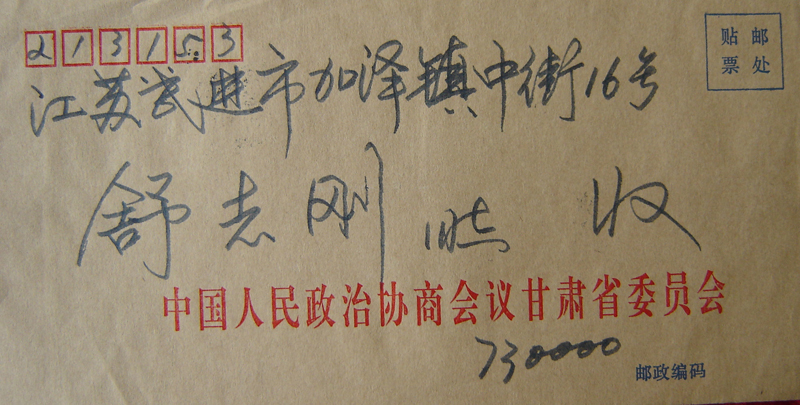 213153
贴邮
票处
江苏武进市加泽镇中街16号
舒志刚 收
中国人民政治协商会议甘肃省委员会
730000
邮政编码